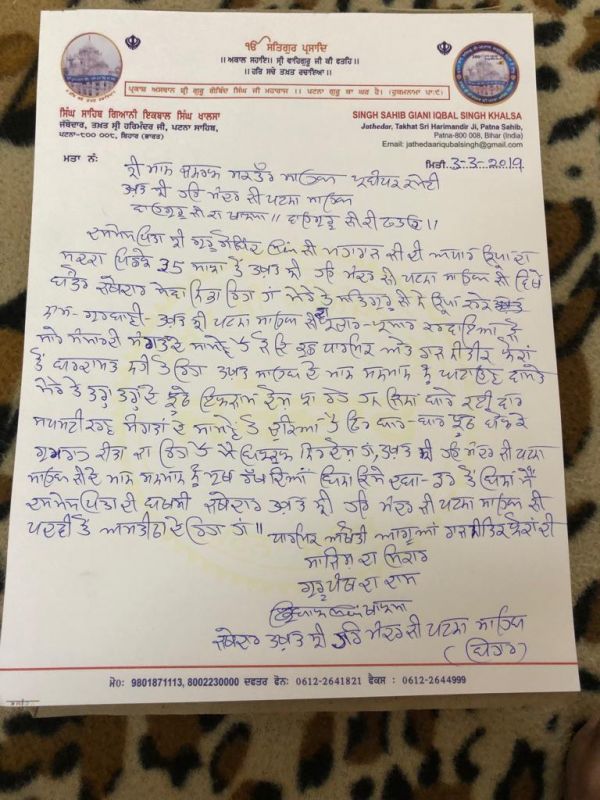 ੴ ਸਤਿਗੁਰ ਪ੍ਰਸਾਦਿ
।। ਅਕਾਲ ਸਹਾਇ।। ਸ੍ਰੀ ਵਾਹਿਗੁਰੂ ਜੀ ਕੀ ਫਤਹਿ।।
।। ਹਰਿ ਸਚੇ ਤਖ਼ਤ ਰਚਾਇਆ।।
ਪ੍ਰਕਾਸ਼ ਅਸਥਾਨ ਸ੍ਰੀ ਗੁਰੂ ਗੋਬਿੰਦ ਸਿੰਘ ਜੀ ਮਹਾਰਾਜ ।। ਪਟਨਾ ਗੁਰੂ ਕਾ ਘਰ ਹੈ। (ਹੁਕਮਨਾਮਾ ਪਾ:੯)
ਸਿੰਘ ਸਾਹਿਬ ਗਿਆਨੀ ਇਕਬਾਲ ਸਿੰਘ ਖਾਲਸਾ
ਜੱਥੇਦਾਰ, ਤਖ਼ਤ ਸ੍ਰੀ ਹਰਿਮੰਦਰ ਜੀ, ਪਟਨਾ ਸਾਹਿਬ,
ਪਟਨਾ-੮੦੦ ੦੦੮, ਬਿਹਾਰ (ਭਾਰਤ)
SINGH SAHIB GIANI IQBAL SINGH KHALSA
Jathedar, Takhat Sri Harimandir Ji, Patna Sahib,
Patna-800 008, Bihar (India)
Email: jathedaariqubalsingh@gmail.com
ਮਤਾ ਨੰ:
ਮਿਤੀ 3-3-2019
ਸ੍ਰੀ ਮਾਨ ਸਾਹਿਬ ਪ੍ਰਬੰਧਕ ਕਮੇਟੀ
ਤਖ਼ਤ ਸ੍ਰੀ ਹਰਿ ਮੰਦਰ ਜੀ ਪਟਨਾ ਸਾਹਿਬ
ਵਾਹਿਗੁਰੂ ਜੀ ਕਾ ਖਾਲਸਾ।। ਵਾਹਿਗੁਰੂ ਜੀ ਕੀ ਫਤਹਿ।।
ਦਸਮੇਸ਼ ਪਿਤਾ ਸ੍ਰੀ ਗੁਰੂ ਗੋਬਿੰਦ ਸਿੰਘ ਜੀ ਮਹਾਰਾਜ ਜੀ ਦੀ ਅਪਾਰ ਕ੍ਰਿਪਾ ਦਾ
ਸਦਕਾ ਪਿਛਲੇ 35 ਸਾਲਾਂ ਤੋਂ ਤਖ਼ਤ ਸ੍ਰੀ ਹਰਿ ਮੰਦਰ ਜੀ ਪਟਨਾ ਸਾਹਿਬ ਜੀ ਵਿਖੇ
ਬਤੌਰ ਜਥੇਦਾਰ ਸੇਵਾ ਨਿਭਾ ਰਿਹਾ ਹਾਂ ਮੇਰੇ ਤੇ ਸਤਿਗੁਰੂ ਜੀ ਨੇ ਕ੍ਰਿਪਾ ਕਰਕੇ
ਨਾਮ-ਗੁਰਬਾਣੀ-ਤਖ਼ਤ ਸ੍ਰੀ ਪਟਨਾ ਸਾਹਿਬ ਜੀ ਦਾ ਪ੍ਰਚਾਰ-ਪ੍ਰਸਾਰ ਕਰਵਾਇਆ ਹੈ
ਸਾਰੇ ਸੰਸਾਰ ਦੀ ਸੰਗਤ ਦੇ ਸਾਮ੍ਹਣੇ ਹੈ ਜੋ ਕਿ ਕੁਛ ਧਾਰਮਿਕ ਅਤੇ ਰਾਜਨੀਤਿਕ ਲੋਕਾਂ
ਤੋਂ ਬਰਦਾਸ਼ਤ ਨਹੀਂ ਹੋ ਰਿਹਾ ਤਖ਼ਤ ਸਾਹਿਬ ਦੇ ਮਾਨ ਸਨਮਾਨ ਨੂੰ ਘਟਾਉਣ ਵਾਸਤੇ
ਮੇਰੇ ਤੇ ਤਰ੍ਹਾਂ ਤਰ੍ਹਾਂ ਦੇ ਝੂਠੇ ਇਲਜ਼ਾਮ ਲਾਏ ਜਾ ਰਹੇ ਹਨ ਜਿਨ੍ਹਾਂ ਬਾਰੇ ਕਈ ਵਾਰ
ਸਪਸ਼ਟੀਕਰਣ ਸੰਗਤਾਂ ਦੇ ਸਾਮ੍ਹਣੇ ਦੇ ਚੁਕਿਆ ਹਾਂ ਫਿਰ ਬਾਰ-ਬਾਰ ਝੂਠ ਬੋਲਕੇ
ਗੁਮਰਾਹ ਕੀਤਾ ਜਾ ਰਿਹਾ ਹੈ ਮੈਂ ਬਿਲਕੁਲ ਨਿਰਦੋਸ਼ ਹਾਂ, ਤਖ਼ਤ ਸ੍ਰੀ ਹਰਿ ਮੰਦਰ ਜੀ ਪਟਨਾ
ਸਾਹਿਬ ਜੀ ਦੇ ਮਾਨ ਸਨਮਾਨ ਨੂੰ ਮੁੱਖ ਰੱਖਦਿਆਂ ਬਿਨਾਂ ਕਿਸੇ ਦਬਾ-ਡਰ ਤੋਂ ਬਿਨਾਂ ਮੈਂ
ਦਸਮੇਸ਼ ਪਿਤਾ ਦੀ ਬਖਸ਼ੀ ਜਥੇਦਾਰ ਤਖ਼ਤ ਸ੍ਰੀ ਹਰਿ ਮੰਦਰ ਜੀ ਪਟਨਾ ਸਾਹਿਬ ਜੀ
ਪਦਵੀ ਤੋਂ ਅਸਤੀਫਾ ਦੇ ਰਿਹਾ ਹਾਂ।।
ਧਾਰਮਿਕ ਅਖੌਤੀ ਆਗੂਆਂ ਰਾਜਨੀਤਿਕ ਲੋਕਾਂ ਦੀ
ਸਾਜ਼ਿਸ਼ ਦਾ ਸ਼ਿਕਾਰ
ਗੁਰੂ ਪੰਥ ਦਾ ਦਾਸ
ਇਕਬਾਲ ਸਿੰਘ ਖਾਲਸਾ
ਜਥੇਦਾਰ ਤਖ਼ਤ ਸ੍ਰੀ ਹਰਿ ਮੰਦਰ ਜੀ ਪਟਨਾ ਸਾਹਿਬ
(ਬਿਹਾਰ)
ਮੋ0: 9801871113, 8002230000 ਦਫਤਰ ਫੋਨ: 0612-2641821 ਫੈਕਸ : 0612-2644999